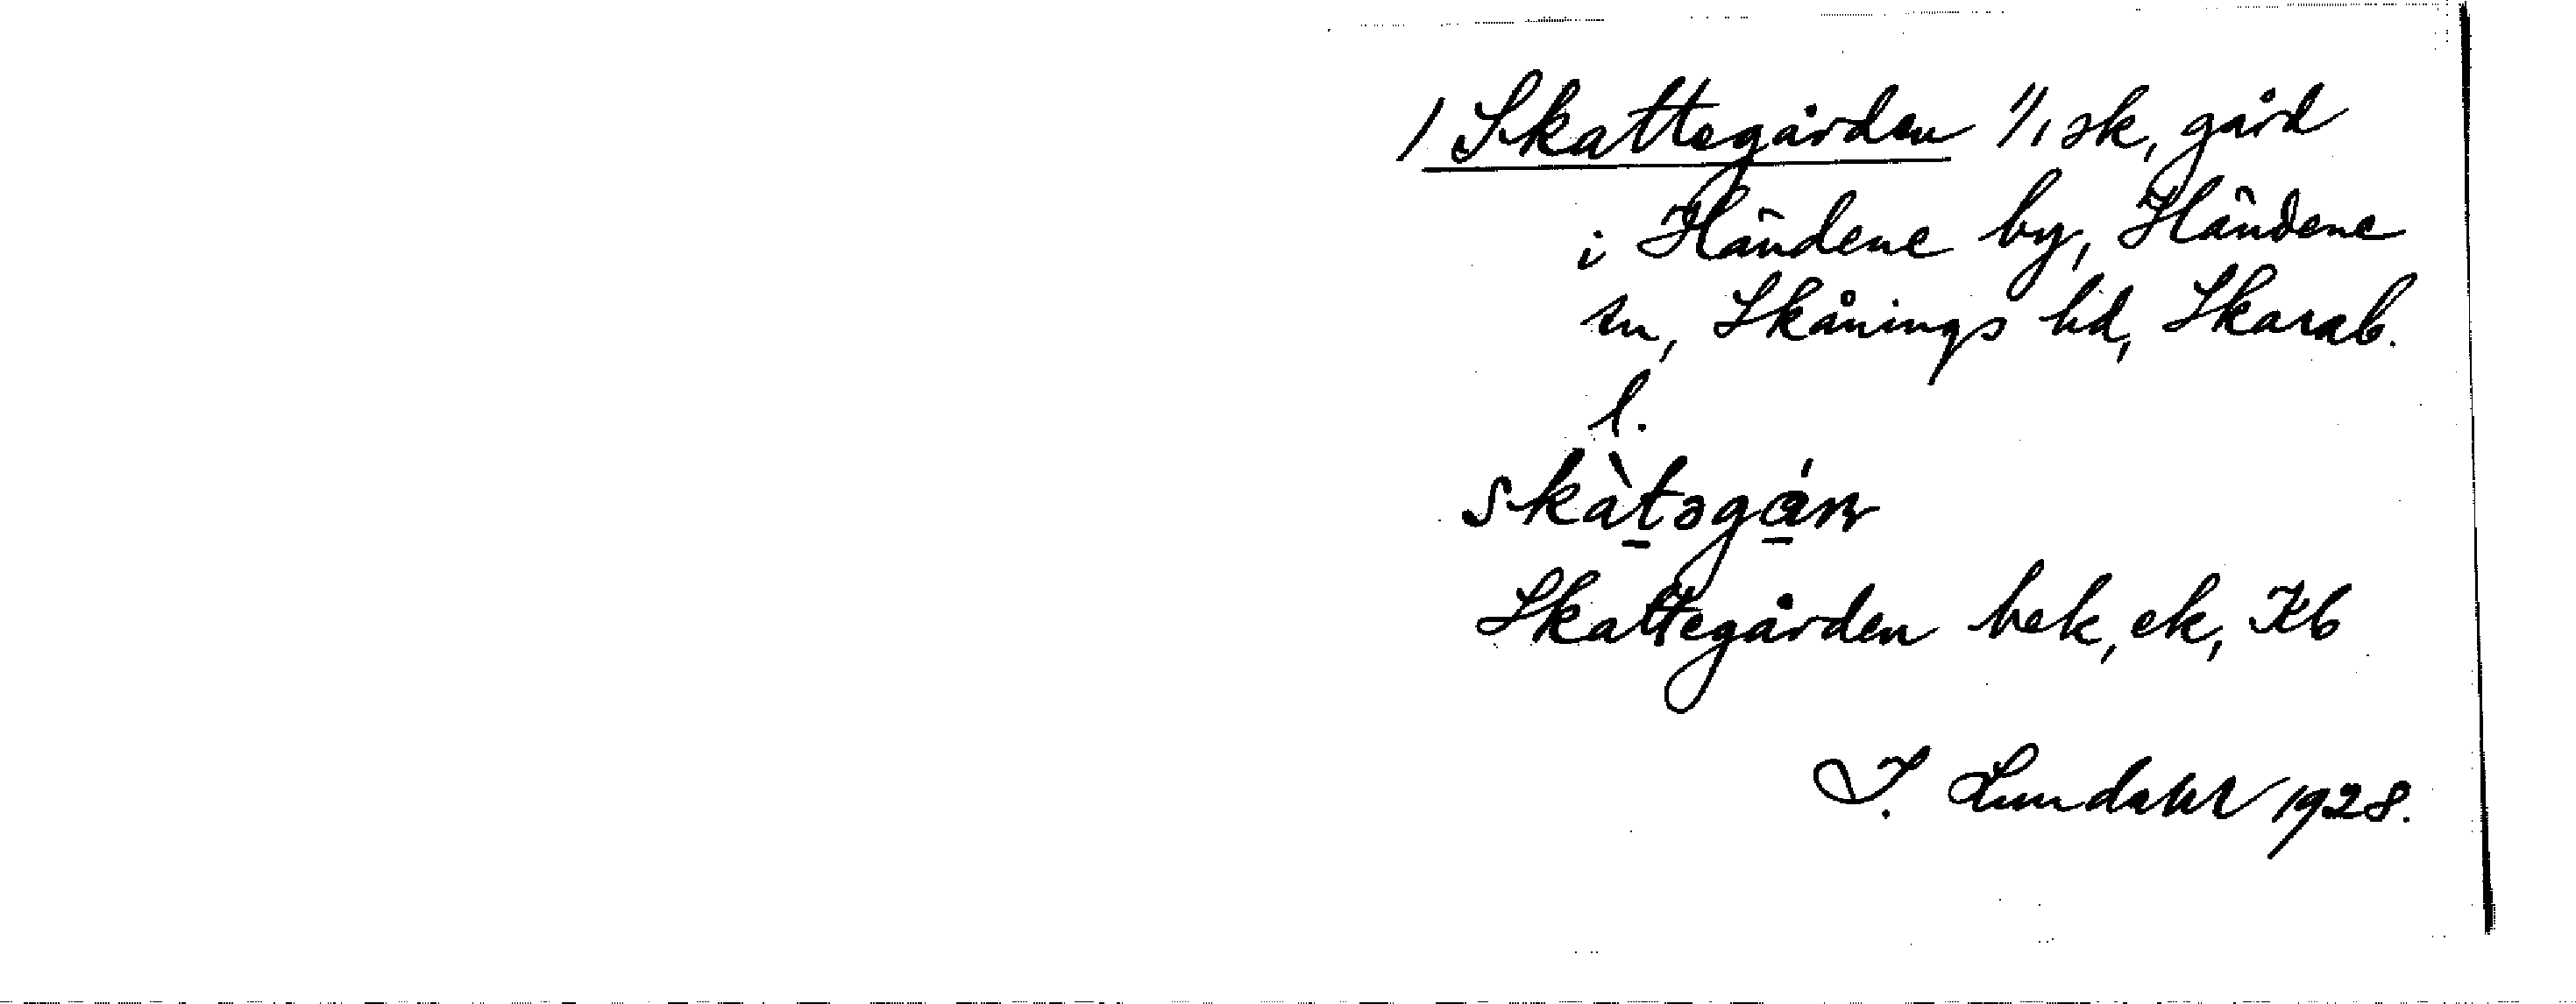 / Skattegården 1/1 sk, gård
i Händene by, Händene
sn, Skånings hd, Skarab.
l.
skàtəgán
Skattegården bek, ek, Kb
I. Lundahl 1928.